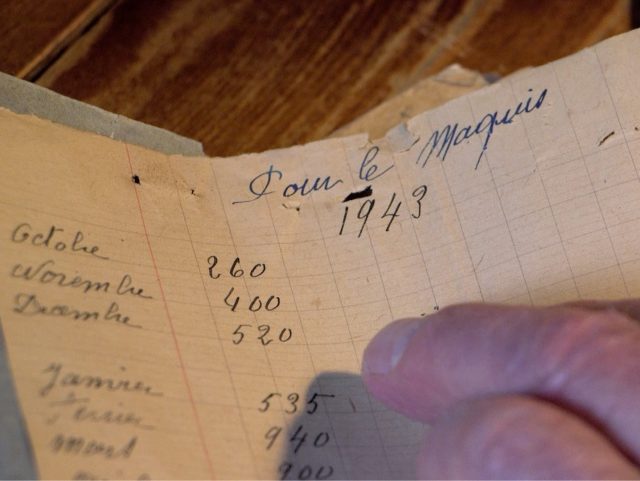 Pour le Maquis
1943
Octobre 260
Novembre 400
Décembre 520
Janvier 535
Février 940
Mars 900